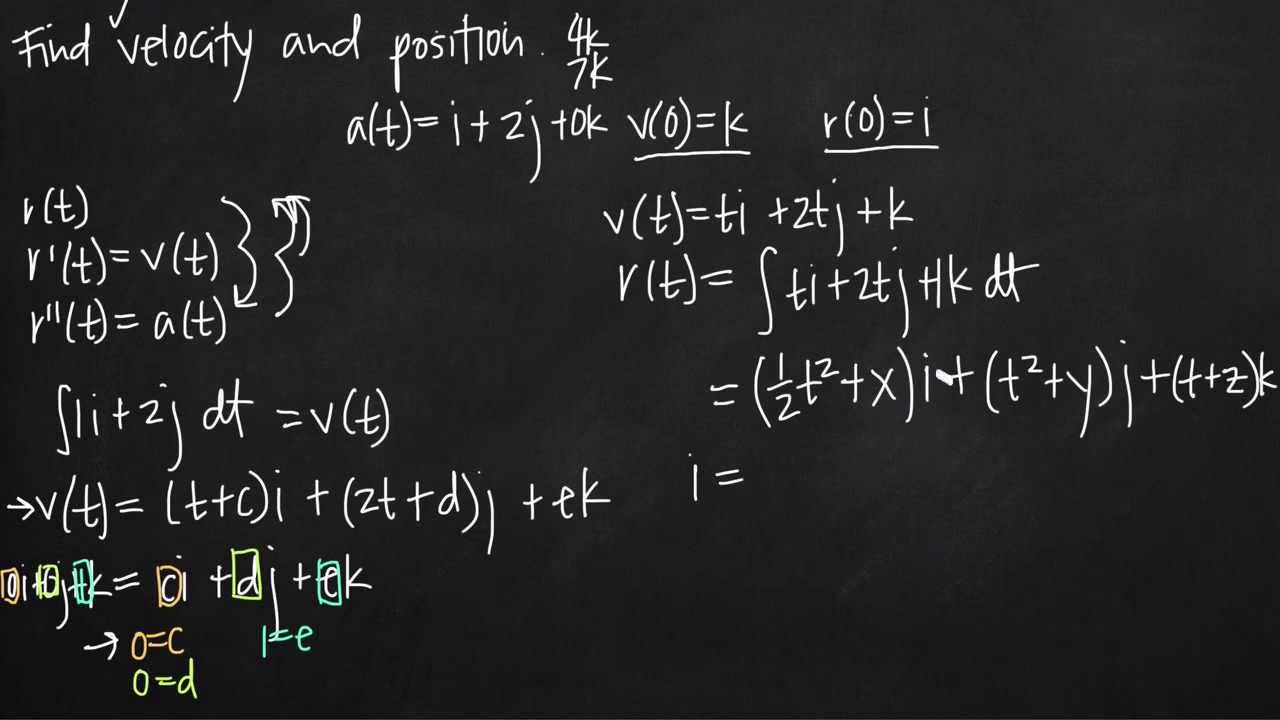 Find velocity and position.
4k
7k
a(t)=i+2j+0k v(0)=k r(0)=i
r(t)
r'(t)=v(t)
r''(t)=a(t)
∫1i+2j dt =v(t)
→v(t)=(t+c)i+(2t+d)j+ek
0i+0j+1k=ci+dj+ek
→0=c 1=e
0=d
v(t)=ti+2tj+k
r(t)=∫ti+2tj+1k dt
=(1/2t²+x)i+(t²+y)j+(t+z)k
i=